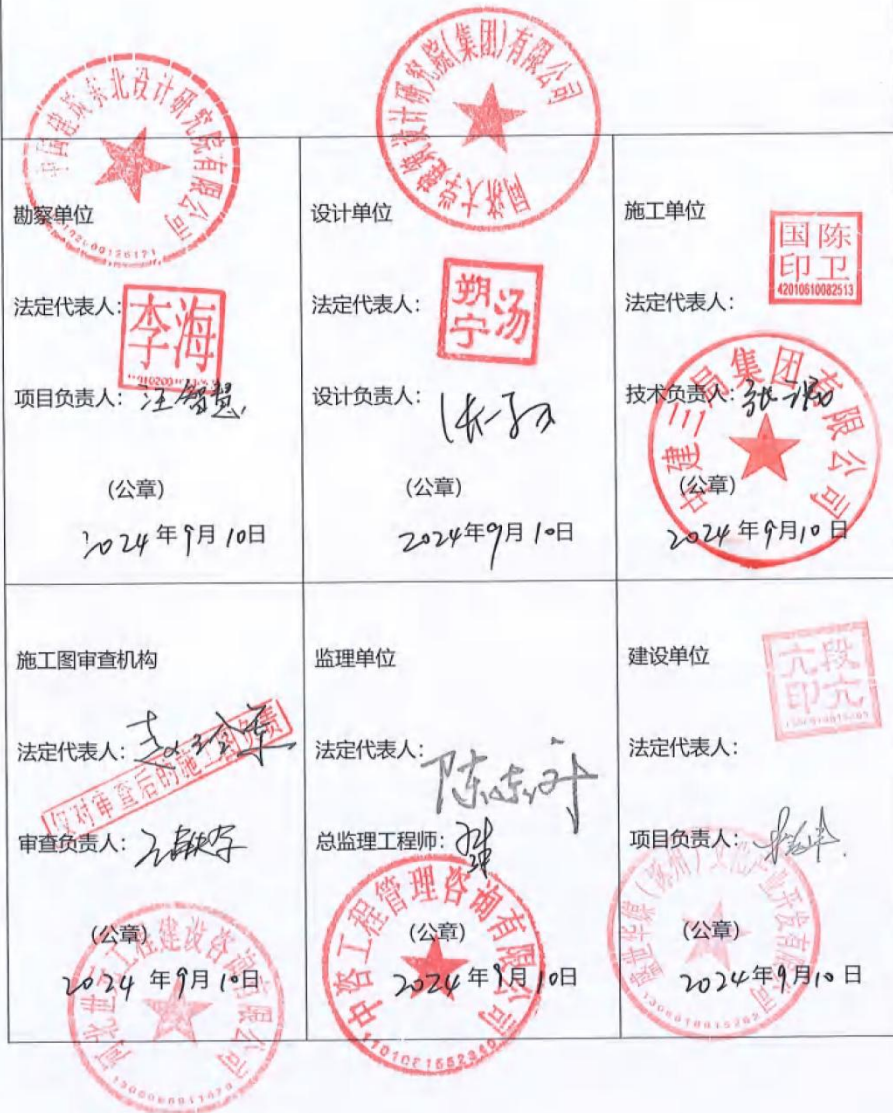 中国建筑东北设计研究院有限公司
同济大学建筑设计研究院(集团)有限公司
勘察单位
法定代表人:
李海
项目负责人: 汪智慧
(公章)
2024年9月10日
设计单位
法定代表人:
汤朔宁
设计负责人:
(公章)
2024年9月10日
施工单位
陈卫国印
42010610082513
法定代表人:
技术负责人:
中建三局集团有限公司
(公章)
2024年9月10日
施工图审查机构
法定代表人:
仅对审查后的施工图负责
审查负责人:
(公章)
2024年9月10日
河北世纪工程建设咨询有限公司
监理单位
法定代表人:
总监理工程师:
中咨工程管理咨询有限公司
(公章)
2024年9月10日
建设单位
段亢亢印
法定代表人:
项目负责人:
(公章)
2024年9月10日